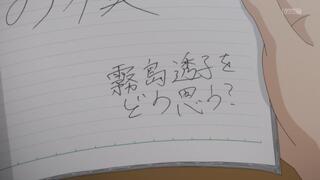 霧島透子を
どう思う?